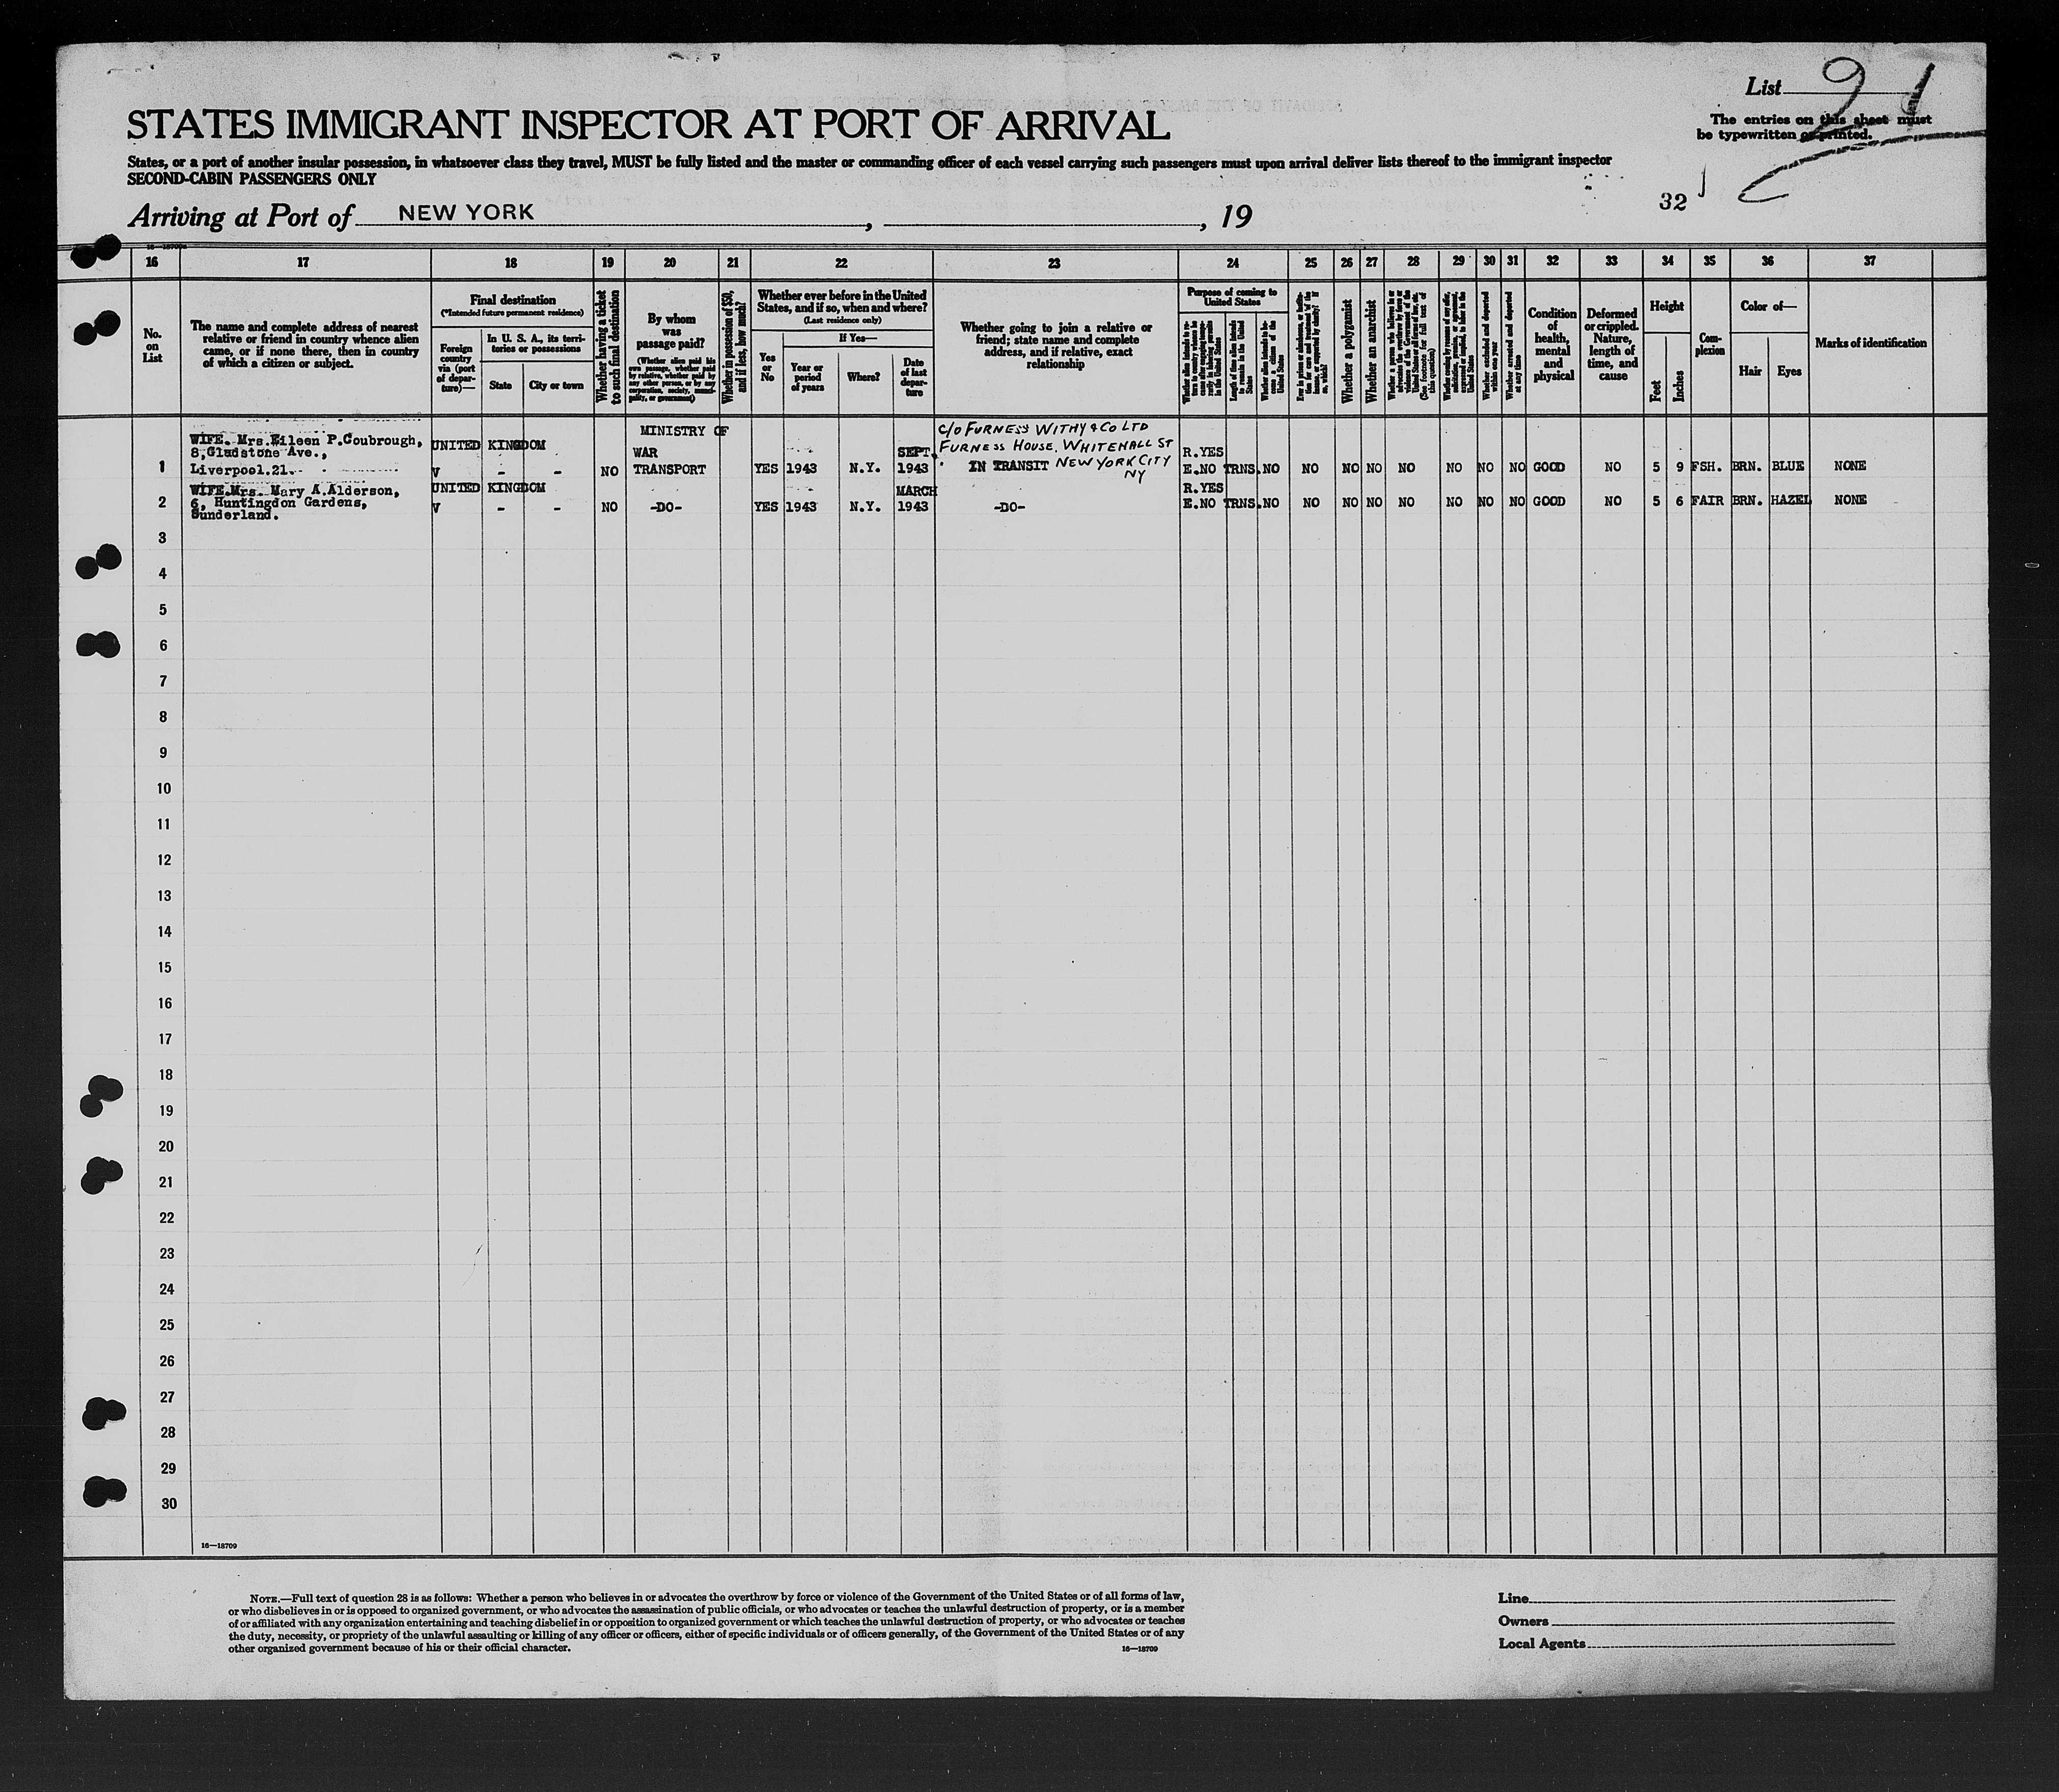 List 21
The entries on this sheet must
be typewritten or printed.
STATES IMMIGRANT INSPECTOR AT PORT OF ARRIVAL
States, or a port of another insular possession, in whatsoever class they travel, MUST be fully listed and the master or commanding officer of each vessel carrying such passengers must upon arrival deliver lists thereof to the immigrant inspector
SECOND-CABIN PASSENGERS ONLY
Arriving at Port of NEW YORK, , 19
32
16 17 18 19 20 21 22 23 24 25 26 27 28 29 30 31 32 33 34 35 36 37
No.
on
List
The name and complete address of nearest
relative or friend in country whence alien
came, or if none there, then in country
of which a citizen or subject.
Final destination
(*Intended future permanent residence)
Foreign
country
via (port
of depar-
ture)—
In U. S. A., its terri-
tories or possessions
State
City or town
Whether having a ticket
to such final destination
By whom
was
passage paid?
(Whether alien paid his
own passage, whether paid
by relative, whether paid by
any other person, or by any
corporation, society, munici-
pality, or government)
Whether in possession of $50,
and if less, how much?
Whether ever before in the United
States, and if so, when and where?
(Last residence only)
Yes
or
No
If Yes—
Year or
period
of years
Where?
Date
of last
depar-
ture
Whether going to join a relative or
friend; state name and complete
address, and if relative, exact
relationship
Purpose of coming to
United States
Whether a polygamist
Whether an anarchist
Condition
of
health,
mental
and
physical
Deformed
or crippled.
Nature,
length of
time, and
cause
Height
Feet
Inches
Com-
plexion
Color of—
Hair
Eyes
Marks of identification
1
WIFE. Mrs.Eileen P.Coubrough,
8,Gladstone Ave.,
Liverpool.21.
UNITED KINGDOM
V - - NO
MINISTRY OF
WAR
TRANSPORT
YES 1943 N.Y.
SEPT.
1943
C/O FURNESS WITHY & CO LTD
FURNESS HOUSE. WHITEHALL ST
IN TRANSIT NEW YORK CITY
NY
R.YES
E.NO TRNS.NO NO NO NO NO NO NO NO GOOD NO 5 9 FSH. BRN. BLUE NONE
2
WIFE.Mrs. Mary A.Alderson,
6, Huntingdon Gardens,
Sunderland.
UNITED KINGDOM
V - - NO -DO- YES 1943 N.Y.
MARCH
1943
-DO-
R.YES
E.NO TRNS.NO NO NO NO NO NO NO NO GOOD NO 5 6 FAIR BRN. HAZEL NONE
3
4
5
6
7
8
9
10
11
12
13
14
15
16
17
18
19
20
21
22
23
24
25
26
27
28
29
30
16—18709
NOTE.—Full text of question 28 is as follows: Whether a person who believes in or advocates the overthrow by force or violence of the Government of the United States or of all forms of law,
or who disbelieves in or is opposed to organized government, or who advocates the assassination of public officials, or who advocates or teaches the unlawful destruction of property, or is a member
of or affiliated with any organization entertaining and teaching disbelief in or opposition to organized government or which teaches the unlawful destruction of property, or who advocates or teaches
the duty, necessity, or propriety of the unlawful assaulting or killing of any officer or officers, either of specific individuals or of officers generally, of the Government of the United States or of any
other organized government because of his or their official character.
16—18709
Line
Owners
Local Agents